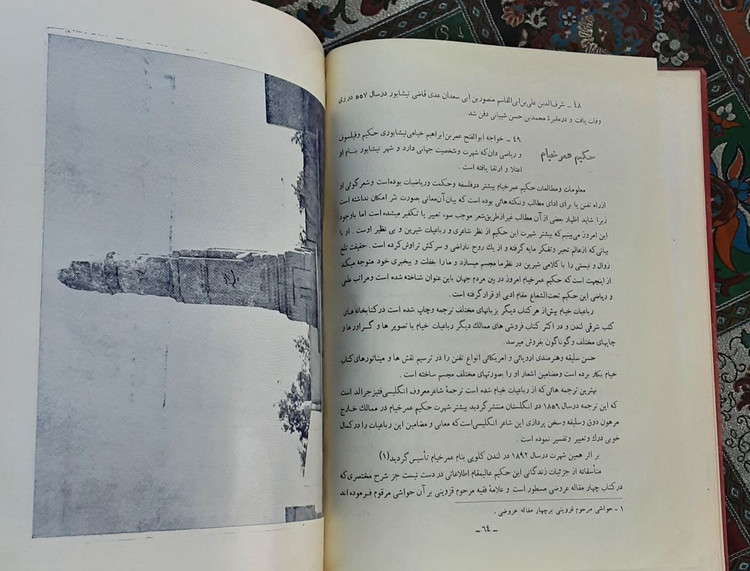 ۴۸ ـ شرف‌الدین علی بن ابی القاسم منصور بن ابی سعدان عدی قاضی نیشابور در سال ۵۵۷ در ری
وفات یافت و در مقبرهٔ محمد بن حسن شیبانی دفن شد.
حکیم عمر خیام
۴۹ ـ خواجه ابوالفتح عمر بن ابراهیم خیامی نیشابوری حکیم و فیلسوف
و ریاضی دان که شهرت و شخصیت جهانی دارد و شهر نیشابور بنام او
اعتلا و ارتقا یافته است.
معلومات و مطالعات حکیم عمر خیام بیشتر در فلسفه و حکمت و ریاضیات بوده است و شعر گوئی او
از راه تفنن یا برای ادای مطالب و نکته هائی بوده است که بیان آن معانی بصورت نثر امکان نداشته است
زیرا شاید اظهار بعضی از آن مطالب غیر از طریق شعر موجب سوء تعبیر یا تکفیر میشده است اما با وجود
این امروز می‌بینیم که بیشتر شهرت این حکیم از نظر شاعری و رباعیات شیرین و بی نظیر اوست. او با
بیانی که از عالم تحیر و تفکر مایه گرفته و از یك روح ناراضی و سرکش تراوش کرده است. حقیقت تلخ
زوال و نیستی را با کلامی شیرین در نظر ما مجسم میسازد و ما را از غفلت و بیخبری خود متوجه میکند
از اینجهت است که حکیم عمر خیام امروز در بین مردم جهان باین عنوان شناخته شده است و مراتب علمی
و ریاضی این حکیم تحت‌الشعاع مقام ادبی او قرار گرفته است.
رباعیات خیام بیش از هر کتاب دیگر بزبانهای مختلف ترجمه و چاپ شده است در کتابخانه های
کتب شرقی لندن و در اکثر کتاب فروشی های ممالك دیگر رباعیات خیام با تصویر ها و گراورها و
چاپهای مختلف و گوناگون بفروش میرسد.
حسن سلیقه و هنرمندی اروپائی و امریکائی انواع تفنن را در ترسیم نقش ها و مینیاتورهای کتاب
خیام بکار برده است و مضامین اشعار او را بصورتهای مختلف مجسم ساخته است.
بهترین ترجمه هائی که از رباعیات خیام شده است ترجمهٔ شاعر معروف انگلیسی فیتز جرالد است
که این ترجمه در سال ۱۸۵۹ در انگلستان منتشر گردید بیشتر شهرت حکیم عمر خیام در ممالك خارج
مرهون ذوق و سلیقه و سخن پردازی این شاعر انگلیسی است که معانی و مضامین این رباعیات را در کمال
خوبی درك و تعبیر و تفسیر نموده است.
بر اثر همین شهرت در سال ۱۸۹۲ در لندن کلوپی بنام عمر خیام تأسیس گردید(۱)
متأسفانه از جزئیات زندگانی این حکیم عالیمقام اطلاعاتی در دست نیست جز شرح مختصری که
در کتاب چهار مقاله عروضی مسطور است و علامهٔ فقیه مرحوم قزوینی بر آن حواشی مرقوم فرموده اند
۱ ـ حواشی مرحوم قزوینی بر چهار مقاله عروضی.
ـ ۶۴ ـ